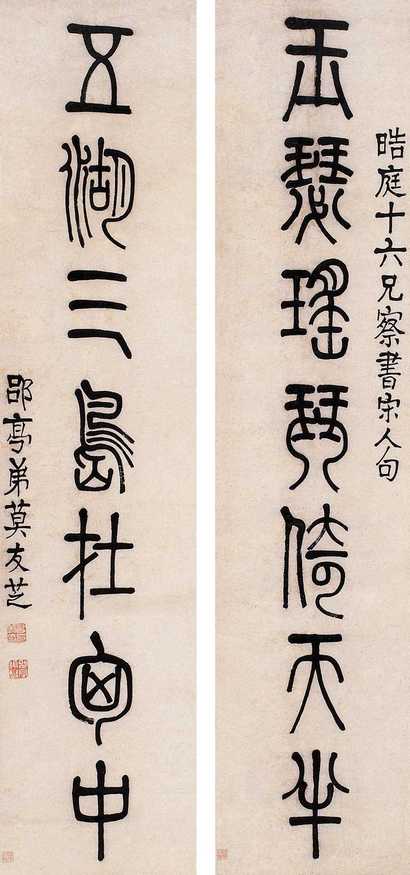 晧庭十六兄察書宋人句
玉瑟瑤琴倚天半
五湖三島在囱中
郘亭弟莫友芝